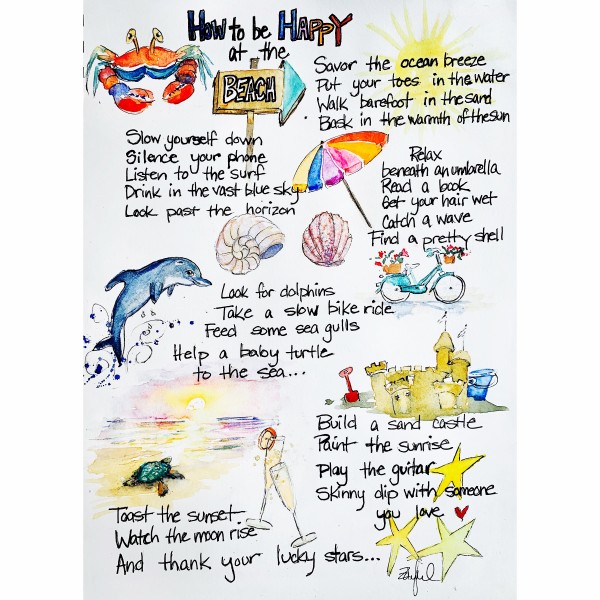 How to be HAPPY
at the
BEACH
Savor the ocean breeze
Put your toes in the water
Walk barefoot in the sand
Bask in the warmth of the sun
Slow yourself down
Silence your phone
Listen to the surf
Drink in the vast blue sky
Look past the horizon
Relax
beneath an umbrella
Read a book
Get your hair wet
Catch a wave
Find a pretty shell
Look for dolphins
Take a slow bike ride
Feed some sea gulls
Help a baby turtle
to the sea...
Build a sand castle
Paint the sunrise
Play the guitar
Skinny dip with someone
you love
Toast the sunset
Watch the moon rise
And thank your lucky stars...